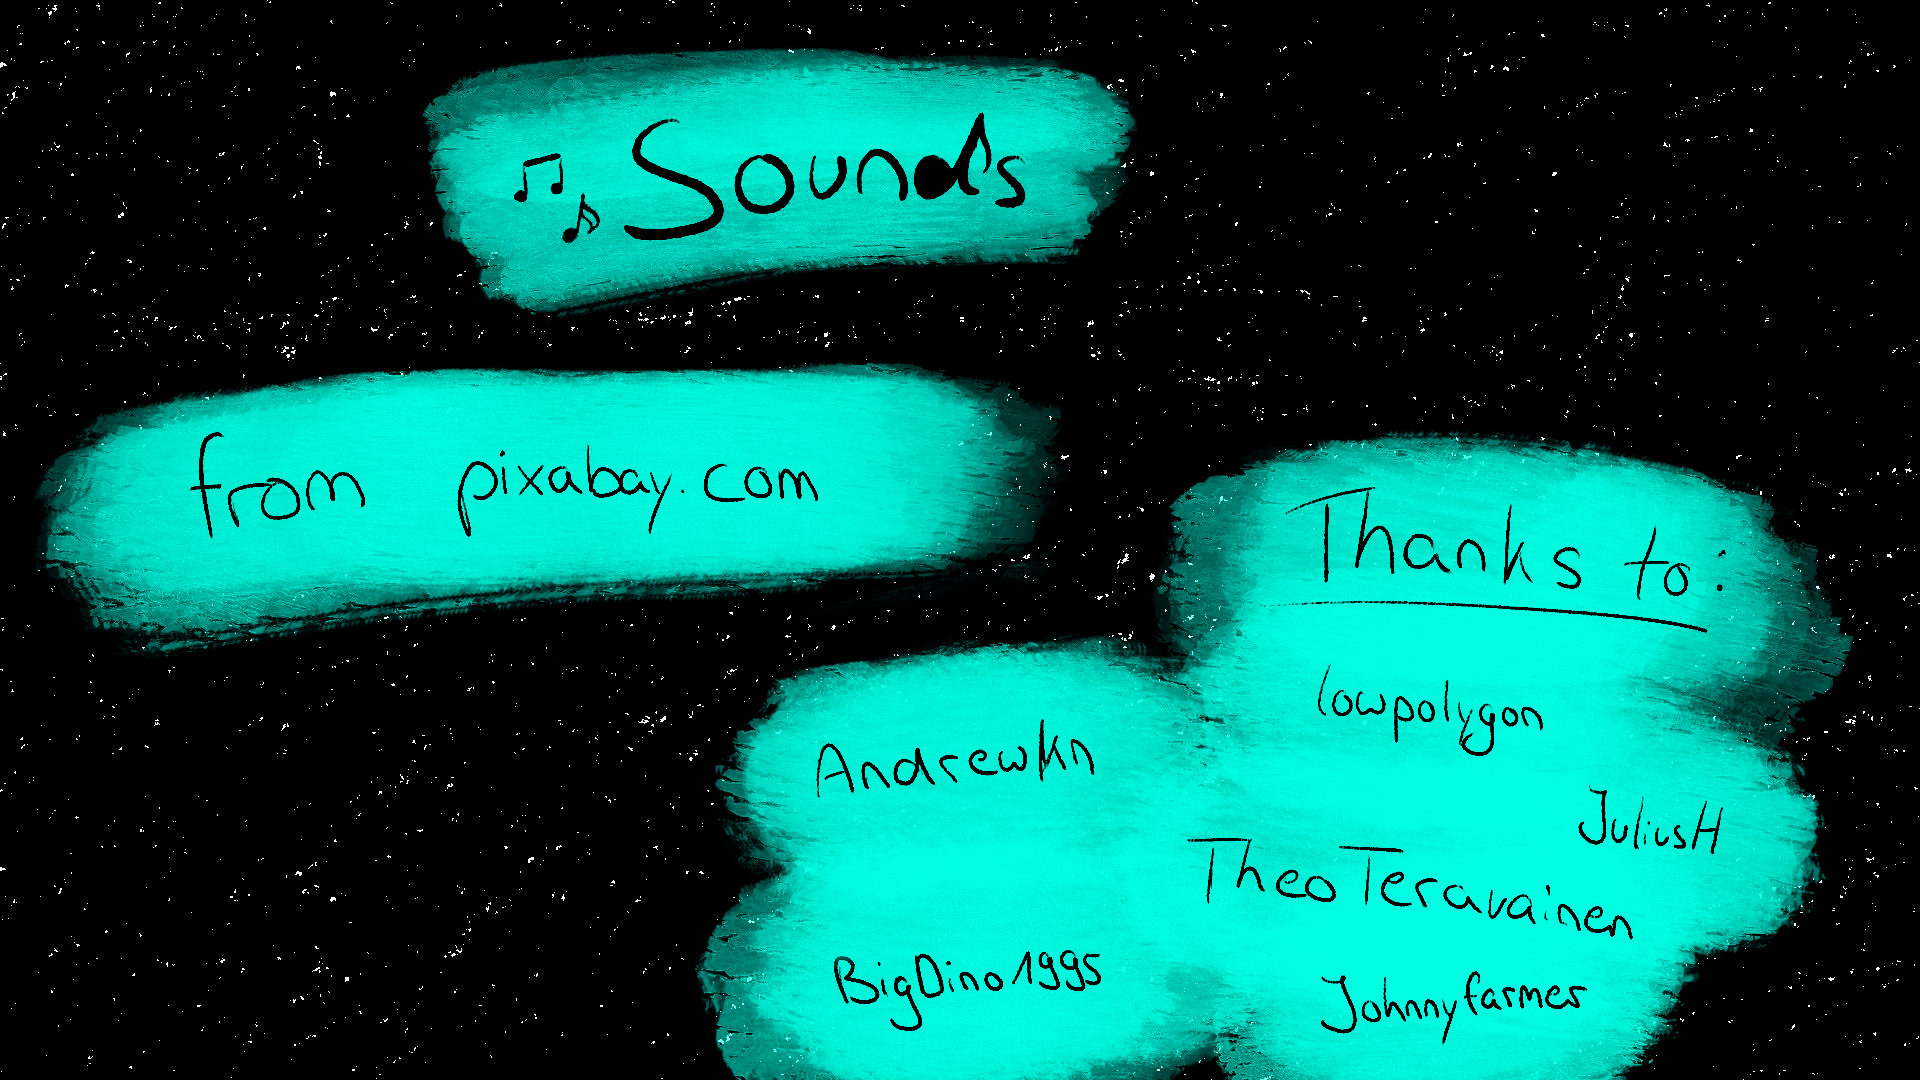 Sounds
from pixabay.com
Thanks to:
lowpolygon
AndrewKn
JuliusH
TheoTeravainen
BigDino1995
Johnnyfarmer